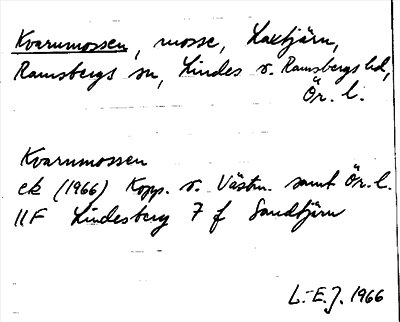 Kvarnmossen, mosse, Laxtjärn,
Ramsbergs sn, Lindes o. Ramsbergs hd,
Ör. l.
Kvarnmossen
ek (1966) Kopp. o. Västm. samt Ör. l.
11F Lindesberg 7 f Sandtjärn
L.-E.J. 1966